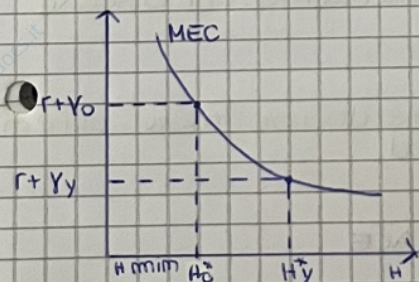 MEC
r+γ₀
r+γy
H min H₀* H*y H